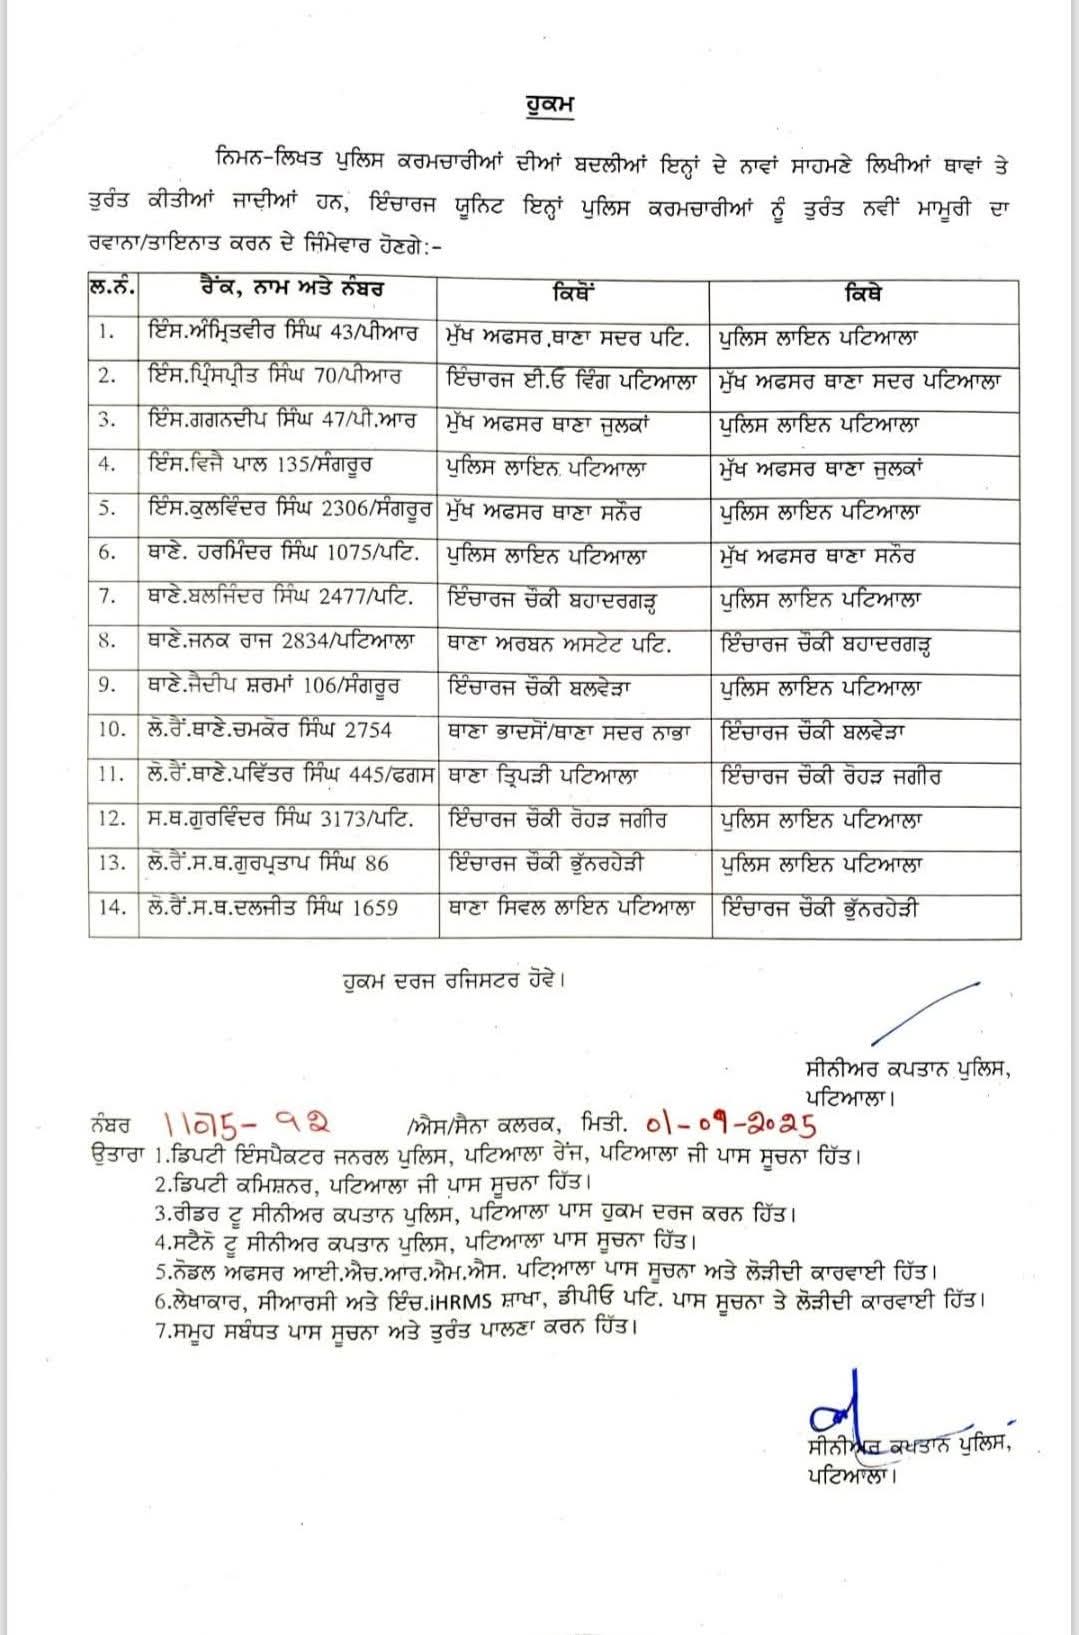 ਹੁਕਮ
ਨਿਮਨ-ਲਿਖਤ ਪੁਲਿਸ ਕਰਮਚਾਰੀਆਂ ਦੀਆਂ ਬਦਲੀਆਂ ਇਨ੍ਹਾਂ ਦੇ ਨਾਵਾਂ ਸਾਹਮਣੇ ਲਿਖੀਆਂ ਥਾਵਾਂ ਤੇ
ਤੁਰੰਤ ਕੀਤੀਆਂ ਜਾਂਦੀਆਂ ਹਨ, ਇੰਚਾਰਜ ਯੂਨਿਟ ਇਨ੍ਹਾਂ ਪੁਲਿਸ ਕਰਮਚਾਰੀਆਂ ਨੂੰ ਤੁਰੰਤ ਨਵੀਂ ਮਾਮੂਰੀ ਦਾ
ਰਵਾਨਾ/ਤਾਇਨਾਤ ਕਰਨ ਦੇ ਜਿੰਮੇਵਾਰ ਹੋਣਗੇ:-
ਲ.ਨੰ. ਰੈਂਕ, ਨਾਮ ਅਤੇ ਨੰਬਰ ਕਿਥੋਂ ਕਿਥੇ
1. ਇੰਸ.ਅੰਮ੍ਰਿਤਵੀਰ ਸਿੰਘ 43/ਪੀਆਰ ਮੁੱਖ ਅਫਸਰ ਥਾਣਾ ਸਦਰ ਪਟਿ. ਪੁਲਿਸ ਲਾਇਨ ਪਟਿਆਲਾ
2. ਇੰਸ.ਪ੍ਰਿੰਸਪ੍ਰੀਤ ਸਿੰਘ 70/ਪੀਆਰ ਇੰਚਾਰਜ ਈ.ਓ ਵਿੰਗ ਪਟਿਆਲਾ ਮੁੱਖ ਅਫਸਰ ਥਾਣਾ ਸਦਰ ਪਟਿਆਲਾ
3. ਇੰਸ.ਗਗਨਦੀਪ ਸਿੰਘ 47/ਪੀ.ਆਰ ਮੁੱਖ ਅਫਸਰ ਥਾਣਾ ਜੁਲਕਾਂ ਪੁਲਿਸ ਲਾਇਨ ਪਟਿਆਲਾ
4. ਇੰਸ.ਵਿਜੈ ਪਾਲ 135/ਸੰਗਰੂਰ ਪੁਲਿਸ ਲਾਇਨ ਪਟਿਆਲਾ ਮੁੱਖ ਅਫਸਰ ਥਾਣਾ ਜੁਲਕਾਂ
5. ਇੰਸ.ਕੁਲਵਿੰਦਰ ਸਿੰਘ 2306/ਸੰਗਰੂਰ ਮੁੱਖ ਅਫਸਰ ਥਾਣਾ ਸਨੌਰ ਪੁਲਿਸ ਲਾਇਨ ਪਟਿਆਲਾ
6. ਥਾਣੇ. ਹਰਮਿੰਦਰ ਸਿੰਘ 1075/ਪਟਿ. ਪੁਲਿਸ ਲਾਇਨ ਪਟਿਆਲਾ ਮੁੱਖ ਅਫਸਰ ਥਾਣਾ ਸਨੌਰ
7. ਥਾਣੇ.ਬਲਜਿੰਦਰ ਸਿੰਘ 2477/ਪਟਿ. ਇੰਚਾਰਜ ਚੌਂਕੀ ਬਹਾਦਰਗੜ੍ਹ ਪੁਲਿਸ ਲਾਇਨ ਪਟਿਆਲਾ
8. ਥਾਣੇ.ਜਨਕ ਰਾਜ 2834/ਪਟਿਆਲਾ ਥਾਣਾ ਅਰਬਨ ਅਸਟੇਟ ਪਟਿ. ਇੰਚਾਰਜ ਚੌਂਕੀ ਬਹਾਦਰਗੜ੍ਹ
9. ਥਾਣੇ.ਜੈਦੀਪ ਸ਼ਰਮਾਂ 106/ਸੰਗਰੂਰ ਇੰਚਾਰਜ ਚੌਂਕੀ ਬਲਵੇੜਾ ਪੁਲਿਸ ਲਾਇਨ ਪਟਿਆਲਾ
10. ਲੋ.ਰੈਂ.ਥਾਣੇ.ਚਮਕੌਰ ਸਿੰਘ 2754 ਥਾਣਾ ਭਾਦਸੋਂ/ਥਾਣਾ ਸਦਰ ਨਾਭਾ ਇੰਚਾਰਜ ਚੌਂਕੀ ਬਲਵੇੜਾ
11. ਲੋ.ਰੈਂ.ਥਾਣੇ.ਪਵਿੱਤਰ ਸਿੰਘ 445/ਫਗਸ ਥਾਣਾ ਤ੍ਰਿਪੜੀ ਪਟਿਆਲਾ ਇੰਚਾਰਜ ਚੌਂਕੀ ਰੋਹੜ ਜਗੀਰ
12. ਸ.ਥ.ਗੁਰਵਿੰਦਰ ਸਿੰਘ 3173/ਪਟਿ. ਇੰਚਾਰਜ ਚੌਂਕੀ ਰੋਹੜ ਜਗੀਰ ਪੁਲਿਸ ਲਾਇਨ ਪਟਿਆਲਾ
13. ਲੋ.ਰੈਂ.ਸ.ਥ.ਗੁਰਪ੍ਰਤਾਪ ਸਿੰਘ 86 ਇੰਚਾਰਜ ਚੌਂਕੀ ਭੁੱਨਰਹੇੜੀ ਪੁਲਿਸ ਲਾਇਨ ਪਟਿਆਲਾ
14. ਲੋ.ਰੈਂ.ਸ.ਥ.ਦਲਜੀਤ ਸਿੰਘ 1659 ਥਾਣਾ ਸਿਵਲ ਲਾਇਨ ਪਟਿਆਲਾ ਇੰਚਾਰਜ ਚੌਂਕੀ ਭੁੱਨਰਹੇੜੀ
ਹੁਕਮ ਦਰਜ ਰਜਿਸਟਰ ਹੋਵੇ।
ਸੀਨੀਅਰ ਕਪਤਾਨ ਪੁਲਿਸ,
ਪਟਿਆਲਾ।
ਨੰਬਰ 11075-92 /ਐਸ/ਸੈਨਾ ਕਲਰਕ, ਮਿਤੀ. 01-09-2025
ਉਤਾਰਾ 1.ਡਿਪਟੀ ਇੰਸਪੈਕਟਰ ਜਨਰਲ ਪੁਲਿਸ, ਪਟਿਆਲਾ ਰੇਂਜ, ਪਟਿਆਲਾ ਜੀ ਪਾਸ ਸੂਚਨਾ ਹਿੱਤ।
2.ਡਿਪਟੀ ਕਮਿਸ਼ਨਰ, ਪਟਿਆਲਾ ਜੀ ਪਾਸ ਸੂਚਨਾ ਹਿੱਤ।
3.ਰੀਡਰ ਟੂ ਸੀਨੀਅਰ ਕਪਤਾਨ ਪੁਲਿਸ, ਪਟਿਆਲਾ ਪਾਸ ਹੁਕਮ ਦਰਜ ਕਰਨ ਹਿੱਤ।
4.ਸਟੈਨੋ ਟੂ ਸੀਨੀਅਰ ਕਪਤਾਨ ਪੁਲਿਸ, ਪਟਿਆਲਾ ਪਾਸ ਸੂਚਨਾ ਹਿੱਤ।
5.ਨੋਡਲ ਅਫਸਰ ਆਈ.ਐਚ.ਆਰ.ਐਮ.ਐਸ. ਪਟਿਆਲਾ ਪਾਸ ਸੂਚਨਾ ਅਤੇ ਲੋੜੀਦੀ ਕਾਰਵਾਈ ਹਿੱਤ।
6.ਲੇਖਾਕਾਰ, ਸੀਆਰਸੀ ਅਤੇ ਇੰਚ.iHRMS ਸ਼ਾਖਾ, ਡੀਪੀਓ ਪਟਿ. ਪਾਸ ਸੂਚਨਾ ਤੇ ਲੋੜੀਦੀ ਕਾਰਵਾਈ ਹਿੱਤ।
7.ਸਮੂਹ ਸਬੰਧਤ ਪਾਸ ਸੂਚਨਾ ਅਤੇ ਤੁਰੰਤ ਪਾਲਣਾ ਕਰਨ ਹਿੱਤ।
ਸੀਨੀਅਰ ਕਪਤਾਨ ਪੁਲਿਸ,
ਪਟਿਆਲਾ।